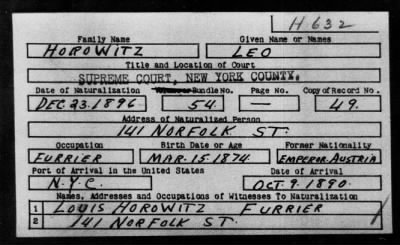 H 632
Family Name Given Name or Names
HOROWITZ LEO
Title and Location of Court
SUPREME COURT, NEW YORK COUNTY.
Date of Naturalization Bundle No. Page No. Copy of Record No.
DEC 23. 1896 54. — 49.
Address of Naturalized Person
141 NORFOLK ST.
Occupation Birth Date or Age Former Nationality
FURRIER MAR. 15. 1874. EMPEROR. AUSTRIA
Port of Arrival in the United States Date of Arrival
N.Y.C. OCT. 9. 1890.
Names, Addresses and Occupations of Witnesses To Naturalization
1 LOUIS HOROWITZ FURRIER
2 141 NORFOLK ST.